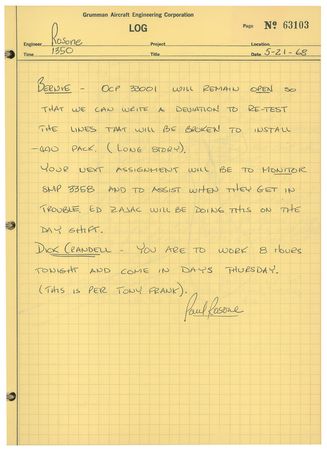 Grumman Aircraft Engineering Corporation
LOG
Page Nº 63103
Engineer Rosone Project Location
Time 1350 Title Date 5-21-68
BERNIE - OCP 33001 WILL REMAIN OPEN SO
THAT WE CAN WRITE A DEVIATION TO RE-TEST
THE LINES THAT WILL BE BROKEN TO INSTALL
-420 PACK. (LONG STORY).
YOUR NEXT ASSIGNMENT WILL BE TO MONITOR
SMP 3358 AND TO ASSIST WHEN THEY GET IN
TROUBLE. ED ZAJAC WILL BE DOING THIS ON THE
DAY SHIFT.
DICK CRANDELL - YOU ARE TO WORK 8 HOURS
TONIGHT AND COME IN DAYS THURSDAY.
(THIS IS PER TONY FRANK).
Paul Rosone